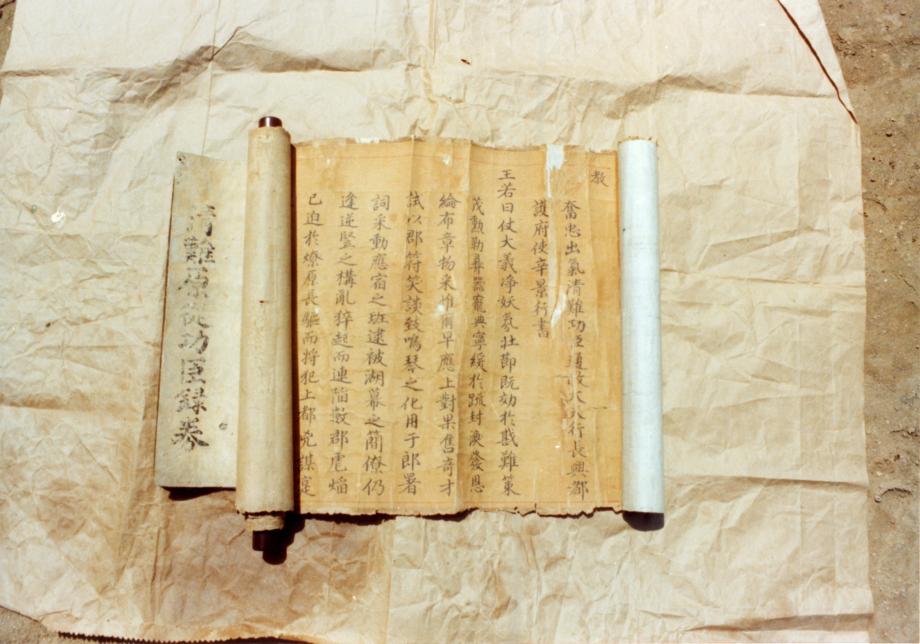 教
奮忠出氣清難功臣通政大夫行長興都
護府使辛景行書
王若曰仗大義淨妖氛壯節旣効於戡難策
茂勳勒彝器寵典寧緩於䟽封渙發恩
綸布章物采惟爾早應上對果舊奇才
試以郡符笑談致鳴琴之化用于郎署
詞采動應宿之班逮被湖幕之簡僚仍
逢逆竪之構亂猝起而連陷數郡虐焰
已迫於燎原長驅而將犯上都兇謀
清難原從功臣録券